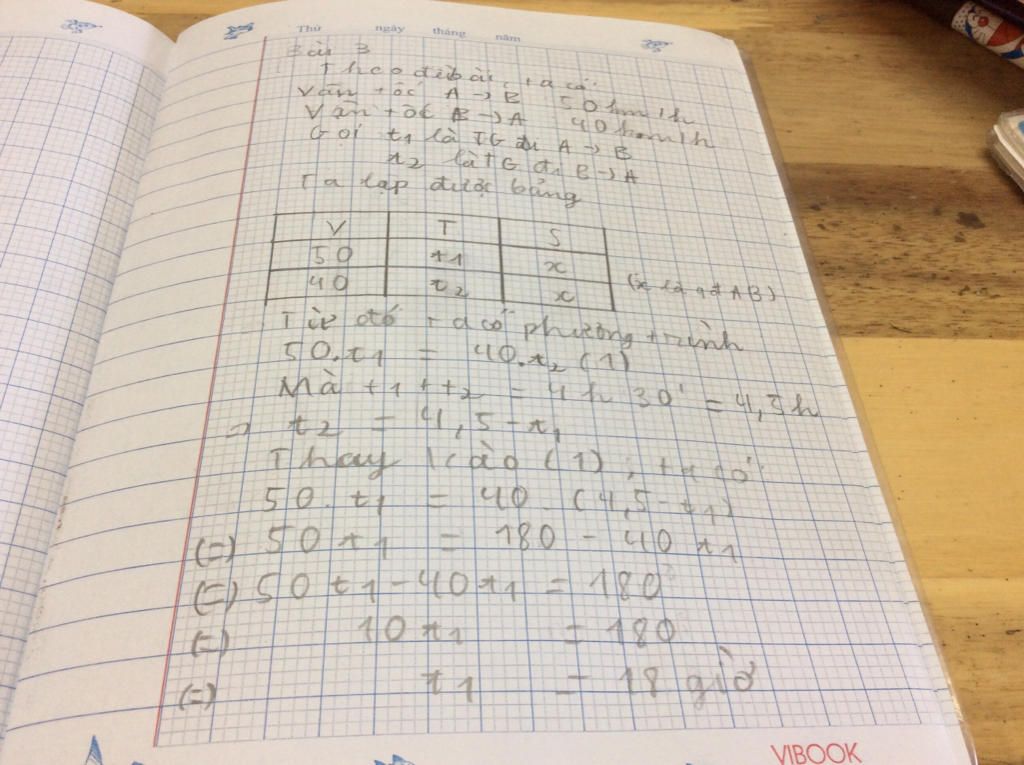 Thứ ngày tháng năm
Bài 3
Theo đề bài, ta có:
Vận tốc A → B 50 km/h
Vận tốc B → A 40 km/h
Gọi t1 là TG đi A → B
t2 là TG đi B → A
Ta lập được bảng
V T S
50 t1 x
40 t2 x (x là qđ AB)
Từ đó ta có phương trình
50.t1 = 40.t2 (1)
Mà t1 + t2 = 4h 30' = 4,5h
=> t2 = 4,5 - t1
Thay vào (1), ta có:
50.t1 = 40.(4,5 - t1)
(=) 50 t1 = 180 - 40 t1
(=) 50 t1 - 40 t1 = 180
(=) 10 t1 = 180
(=) t1 = 18 giờ
VIBOOK